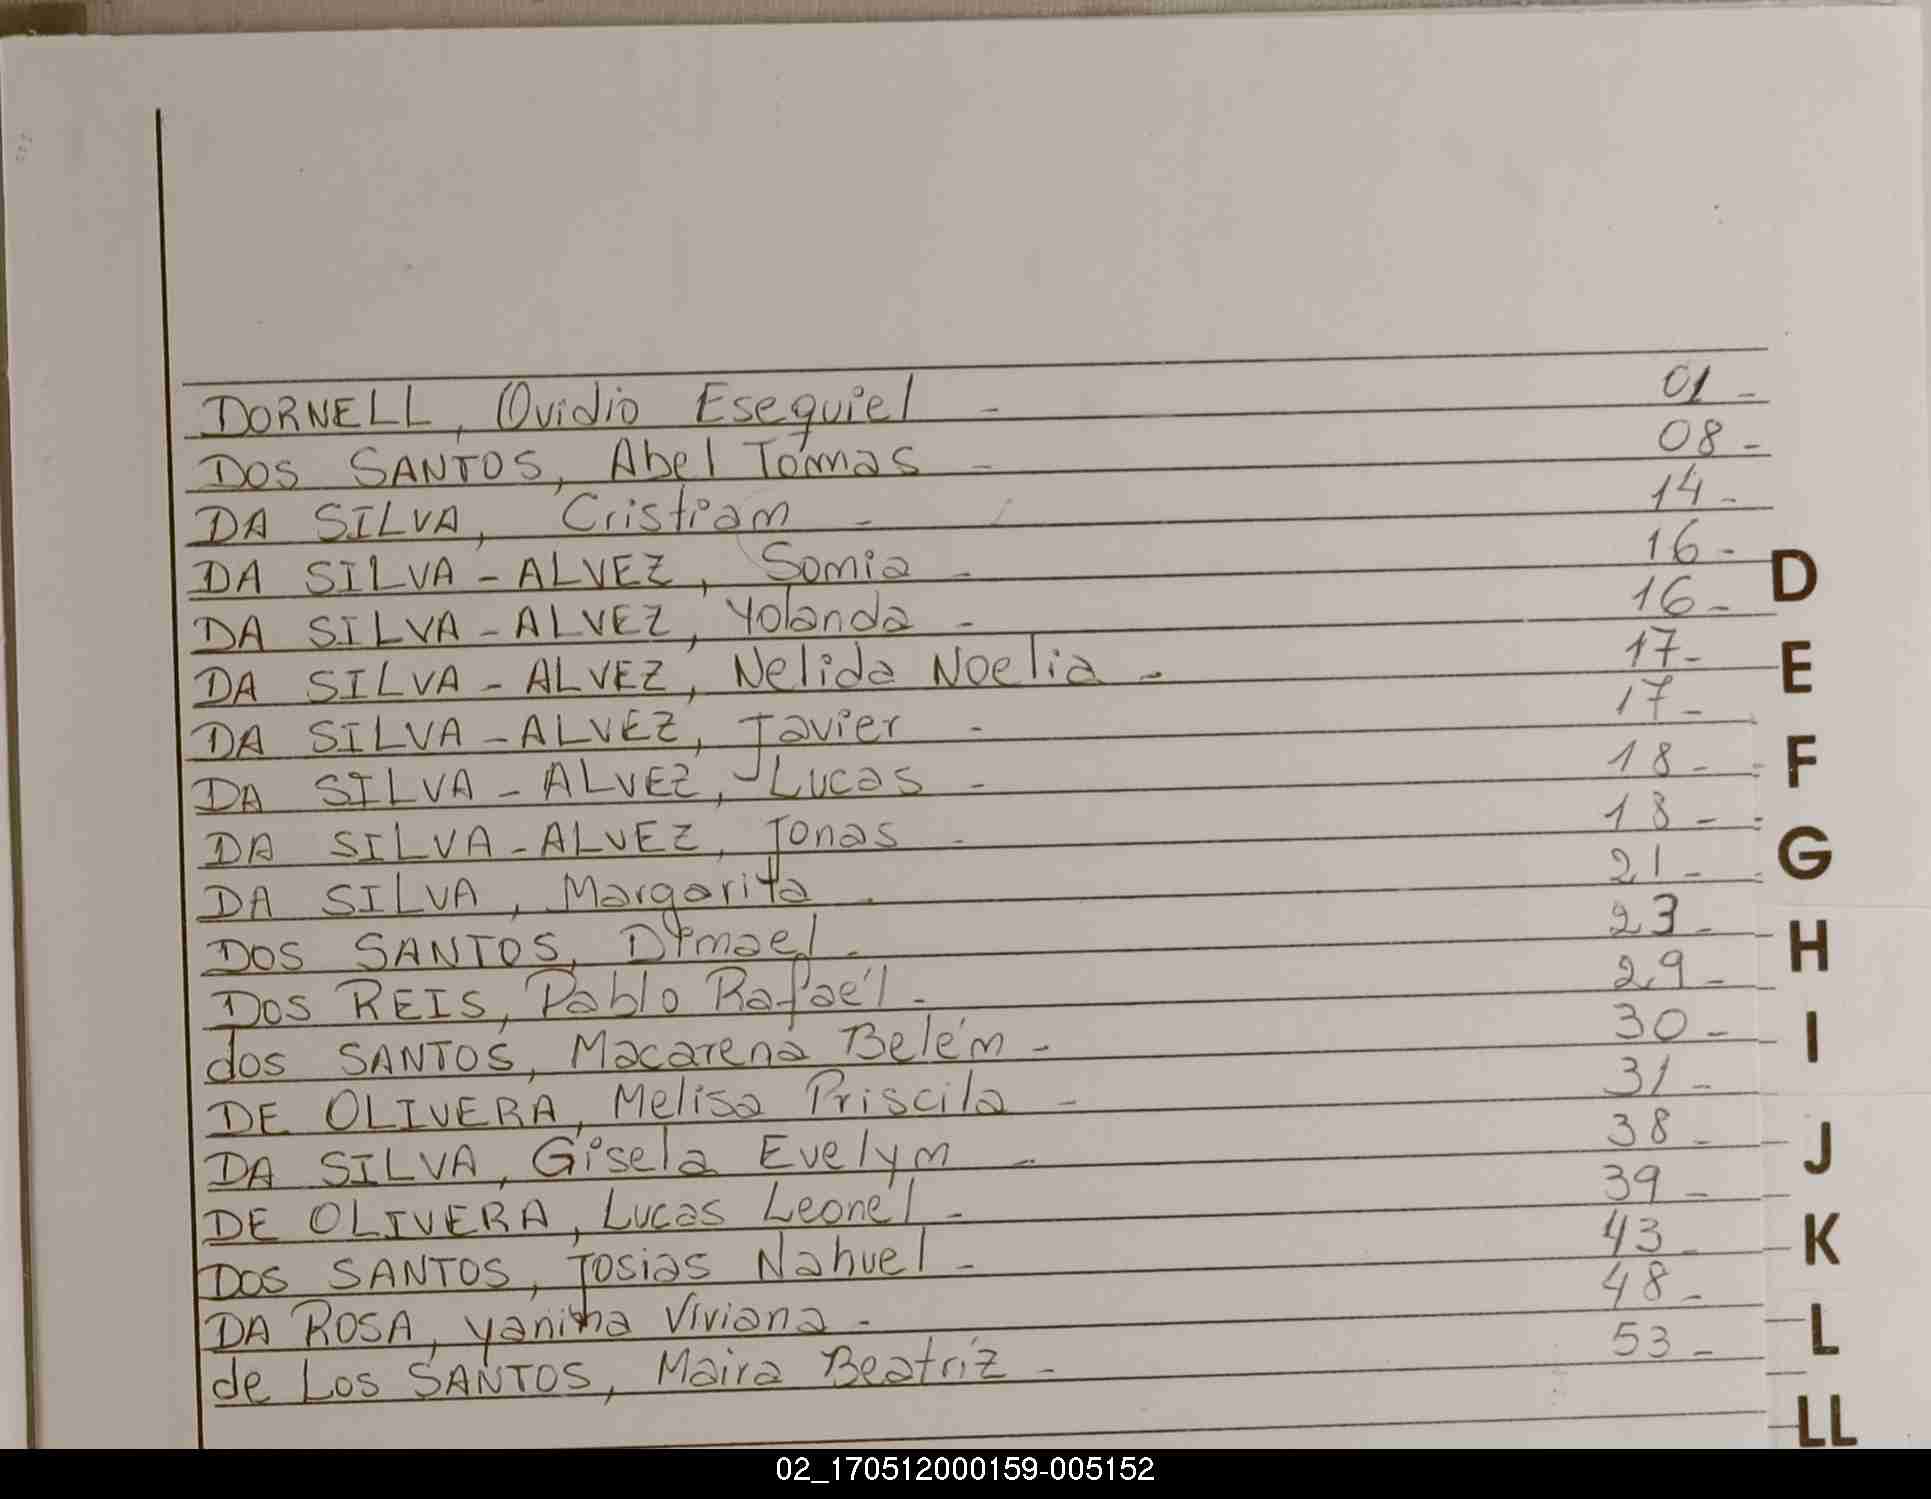 DORNELL, Ovidio Esequiel - 01-
DOS SANTOS, Abel Tomas - 08-
DA SILVA, Cristiam - 14-
DA SILVA-ALVEZ, Somia - 16-
DA SILVA-ALVEZ, Yolanda - 16-
DA SILVA-ALVEZ, Nelida Noelia - 17-
DA SILVA-ALVEZ, Javier - 17-
DA SILVA-ALVEZ, Lucas - 18-
DA SILVA-ALVEZ, Jonas - 18-
DA SILVA, Margarita - 21-
DOS SANTOS, Dimael - 23-
DOS REIS, Pablo Rafaél - 29-
dos SANTOS, Macarena Belém - 30-
DE OLIVERA, Melisa Priscila - 31-
DA SILVA, Gisela Evelym - 38-
DE OLIVERA, Lucas Leonel - 39-
DOS SANTOS, Josias Nahuel - 43-
DA ROSA, Yanina Viviana - 48-
de Los SANTOS, Maira Beatríz - 53-
D
E
F
G
H
I
J
K
L
LL
02_170512000159-005152